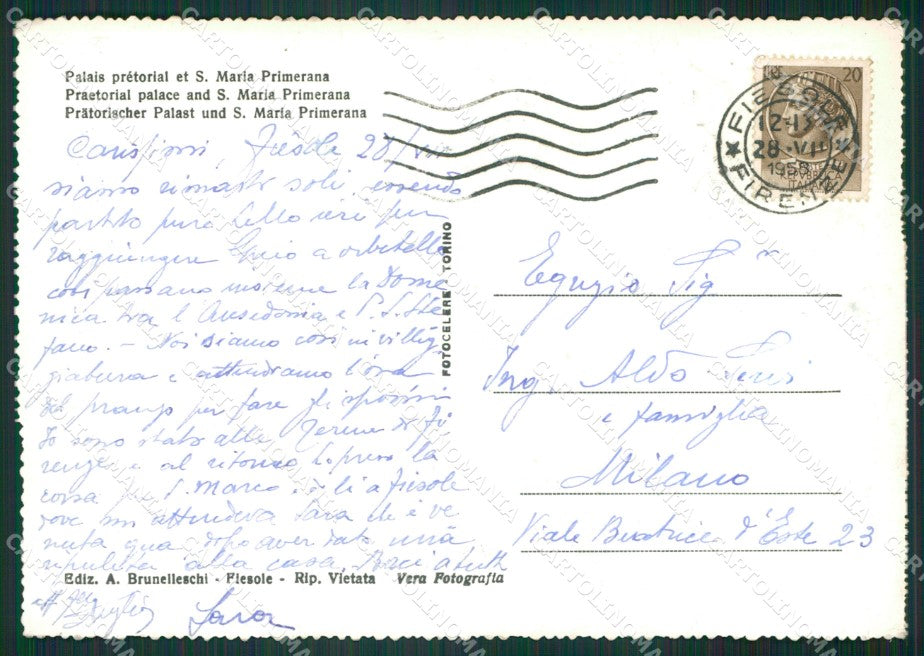 Palais prétorial et S. Maria Primerana
Praetorial palace and S. Maria Primerana
Prätorischer Palast und S. Maria Primerana
Carissimi, Fiesole 28/VII
siamo rimasti soli, essendo
partito pure Lello ieri per
raggiungere a Orbetello
così passano insieme la Dome
nica tra l'Ansedonia e P. S. Ste
fano. - Noi siamo così in villeg
giatura e attendiamo l'ora
del pranzo per fare gli sposini
Io sono stato alle Terme di Fi
renze e al ritorno ho preso la
corsa S. Marco e di lì a Fiesole
dove mi attendeva Sara che è ve
nuta qua dopo aver dato una
ripulita alla casa. Baci a tutti
Sara
Ediz. A. Brunelleschi - Fiesole - Rip. Vietata Vera Fotografia
FOTOCELERE TORINO
20
FIESOLE
28.VII
FIRENZE
Egregio Sigr
Ing. Aldo
e famiglia
Milano
Viale Beatrice d'Este 23
CARTOLINOMANIA